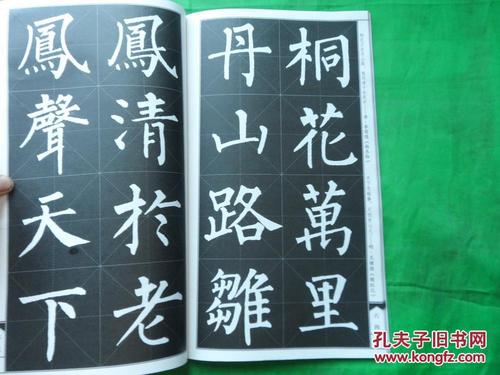 桐花萬里
丹山路雛
鳳清於老
鳳聲天下
孔夫子旧书网
www.kongfz.com